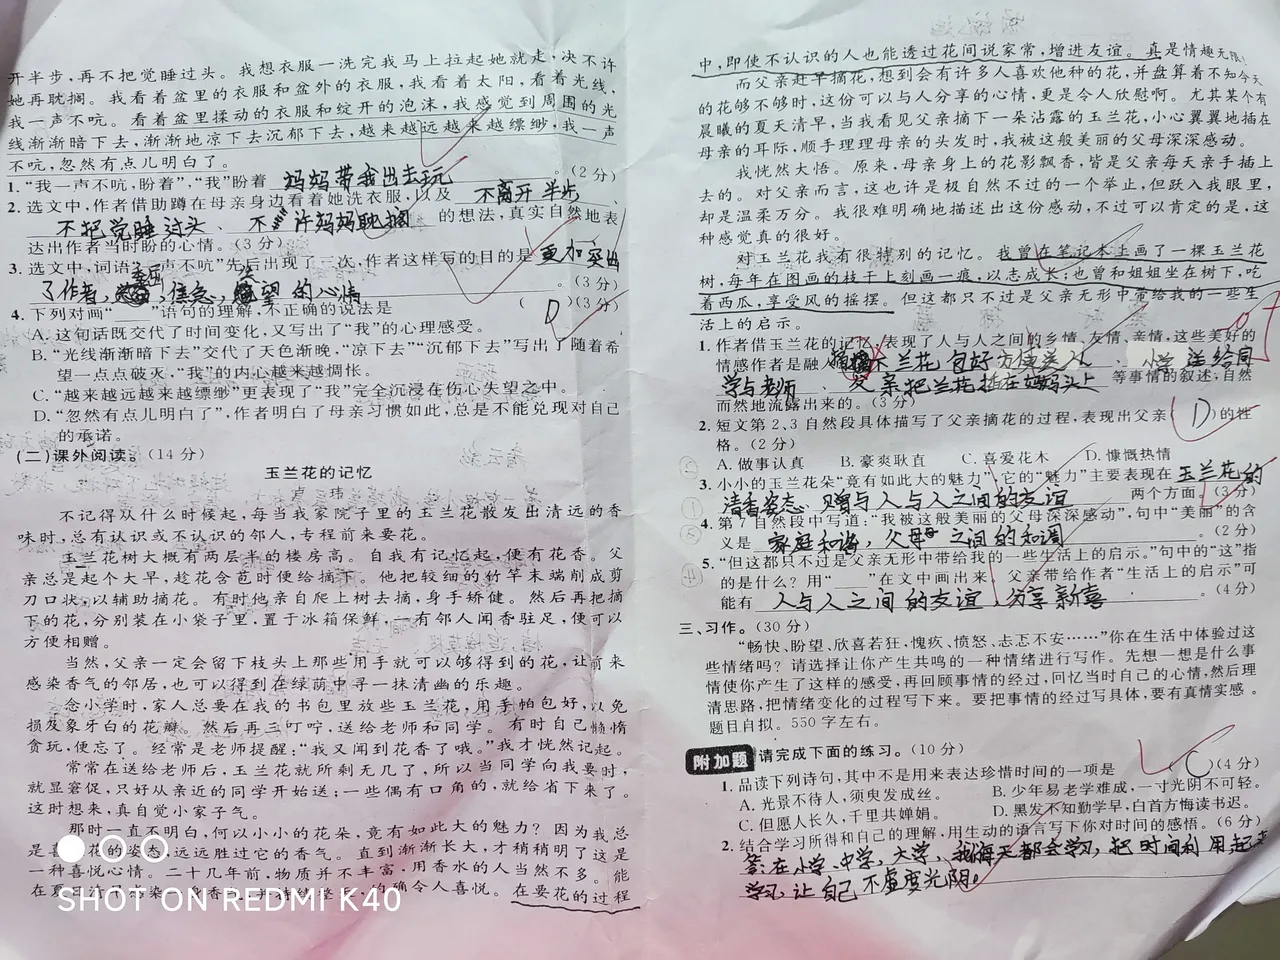 开半步，再不把觉睡过头。我想衣服一洗完我马上拉起她就走，决不许
她再耽搁。我看着盆里的衣服和盆外的衣服，我看着太阳，看着光线，
我一声不吭。看着盆里揉动的衣服和绽开的泡沫，我感觉到周围的光
线渐渐暗下去，渐渐地凉下去沉郁下去，越来越远越来越缥缈，我一声
不吭，忽然有点儿明白了。
1.“我一声不吭，盼着”，“我”盼着 妈妈带我出去玩 。（2分）
2. 选文中，作者借助蹲在母亲身边看着她洗衣服，以及 不离开半步、
不把觉睡过头、不许妈妈耽搁 的想法，真实自然地表
达出作者当时盼的心情。（3分）
3. 选文中，词语“一声不吭”先后出现了二次，作者这样写的目的是 更加突出
了作者，委屈，焦急，盼望的心情 。（3分）
4. 下列对画“ ”语句的理解，不正确的说法是 （ D ）（3分）
A. 这句话既交代了时间变化，又写出了“我”的心理感受。
B.“光线渐渐暗下去”交代了天色渐晚，“凉下去”“沉郁下去”写出了随着希
望一点点破灭，“我”的内心越来越惆怅。
C.“越来越远越来越缥缈”更表现了“我”完全沉浸在伤心失望之中。
D.“忽然有点儿明白了”，作者明白了母亲习惯如此，总是不能兑现对自己
的承诺。
（二）课外阅读。（14分）
玉兰花的记忆
不记得从什么时候起，每当我家院子里的玉兰花散发出清远的香
味时，总有认识或不认识的邻人，专程前来要花。
玉兰花树大概有两层半的楼房高。自我有记忆起，便有花香。父
亲总是起个大早，趁花含苞时便给摘下。他把较细的竹竿末端削成剪
刀口状，以辅助摘花。有时他亲自爬上树去摘，身手矫健。然后再把摘
下的花，分别装在小袋子里，置于冰箱保鲜，一有邻人闻香驻足，便可以
方便相赠。
当然，父亲一定会留下枝头上那些用手就可以够得到的花，让前来
感染香气的邻居，也可以得到在绿荫中寻一抹清幽的乐趣。
念小学时，家人总要在我的书包里放些玉兰花，用手帕包好，以免
损及象牙白的花瓣。然后再三叮咛，送给老师和同学。有时自己懒惰
贪玩，便忘了。经常是老师提醒：“我又闻到花香了哦。”我才恍然记起。
常常在送给老师后，玉兰花就所剩无几了，所以当同学向我要时，
就显窘促，只好从亲近的同学开始送；一些偶有口角的，就给省下来了。
这时想来，真自觉小家子气。
那时一直不明白，何以小小的花朵，竟有如此大的魅力？因为我总
是喜 花的姿态，远远胜过它的香气。直到渐渐长大，才稍稍明了这是
一种喜悦心情。二十几年前，物质并不丰富，用香水的人当然不多。能
在夏 的确令人喜悦。在要花的过程
SHOT ON REDMI K40
中，即使不认识的人也能透过花间说家常，增进友谊。真是情趣无限
而父亲赶早摘花，想到会有许多人喜欢他种的花，并盘算着不知今天
的花够不够时，这份可以与人分享的心情，更是令人欣慰啊。尤其某个有
晨曦的夏天清早，当我看见父亲摘下一朵沾露的玉兰花，小心翼翼地插在
母亲的耳际，顺手理理母亲的头发时，我被这般美丽的父母深深感动。
我恍然大悟。原来，母亲身上的花影飘香，皆是父亲每天亲手插上
去的。对父亲而言，这也许是极自然不过的一个举止，但跃入我眼里，
却是温柔万分。我很难明确地描述出这份感动，不过可以肯定的是，这
种感觉真的很好。
对玉兰花我有很特别的记忆。我曾在笔记本上画了一棵玉兰花
树，每年在图画的枝干上刻画一痕，以志成长；也曾和姐姐坐在树下，吃
着西瓜，享受风的摇摆。但这都只不过是父亲无形中带给我的一些生
活上的启示。
1. 作者借玉兰花的记忆，表现了人与人之间的乡情、友情、亲情，这些美好的
情感作者是融入 摘 木兰花包好方便送人 、 小学送给同
学与老师 、 父亲把兰花插在妈妈头上 等事情的叙述，自然
而然地流露出来的。（3分）
2. 短文第2、3自然段具体描写了父亲摘花的过程，表现出父亲（ D ）的性
格。（2分）
A. 做事认真 B. 豪爽耿直 C. 喜爱花木 D. 慷慨热情
3. 小小的玉兰花朵“竟有如此大的魅力”，它的“魅力”主要表现在 玉兰花的
清香姿态 赠与人与人之间的友谊 两个方面。（3分）
4. 第7自然段中写道：“我被这般美丽的父母深深感动”，句中“美丽”的含
义是 家庭和谐，父母之间的和调 。（2分）
5.“但这都只不过是父亲无形中带给我的一些生活上的启示。”句中的“这”指
的是什么？用“ ”在文中画出来，父亲带给作者“生活上的启示”可
能有 人与人之间的友谊，分享新喜 。（4分）
三、习作。（30分）
“畅快、盼望、欣喜若狂、愧疚、愤怒、忐忑不安……”你在生活中体验过这
些情绪吗？请选择让你产生共鸣的一种情绪进行写作。先想一想是什么事
情使你产生了这样的感受，再回顾事情的经过，回忆当时自己的心情，然后理
清思路，把情绪变化的过程写下来。要把事情的经过写具体，要有真情实感。
题目自拟。550字左右。
附加题 请完成下面的练习。（10分）
1. 品读下列诗句，其中不是用来表达珍惜时间的一项是 （ C ）（4分）
A. 光景不待人，须臾发成丝。 B. 少年易老学难成，一寸光阴不可轻。
C. 但愿人长久，千里共婵娟。 D. 黑发不知勤学早，白首方悔读书迟。
2. 结合学习所得和自己的理解，用生动的语言写下你对时间的感悟。（6分）
答：在小学、中学，大学，我每天都会学习，把时间利用起来
学习，让自己不虚度光阴。